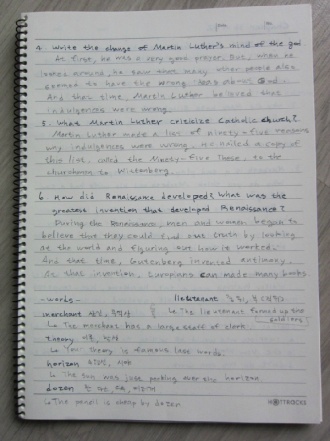 4. Write the change of Martin Luther's mind of the god
At first, he was a very good prayer. But, when he
looked around, he saw that many other people also
seemed to have the wrong ideas about God.
And that time, Martin Luther believed that
indulgences were wrong.
5. What Martin Luther criticize Catholic church?
Martin Luther made a list of ninety-five reasons
why indulgences were wrong. He nailed a copy of
this list, called the Ninety-five These, to the
churchdoor to Wittenberg.
6. How did Renaissance developed? What was the
greatest invention that developed Renaissance?
During the Renaissance, men and women began to
believe that they could find out truth by looking
at the world and figuring out how it worked.
And that time, Gutenberg invented
At that invention, Europians can made many books
-words-
merchant 상인,
The merchant has a large staff of clerk.
theory 이론,
Your theory is famous last words.
horizon
The sun was just peeking over the horizon
dozen
The pencil is cheap by dozen
lieutenant
The lieutenant formed up the
soldiers
HOTTRACKS